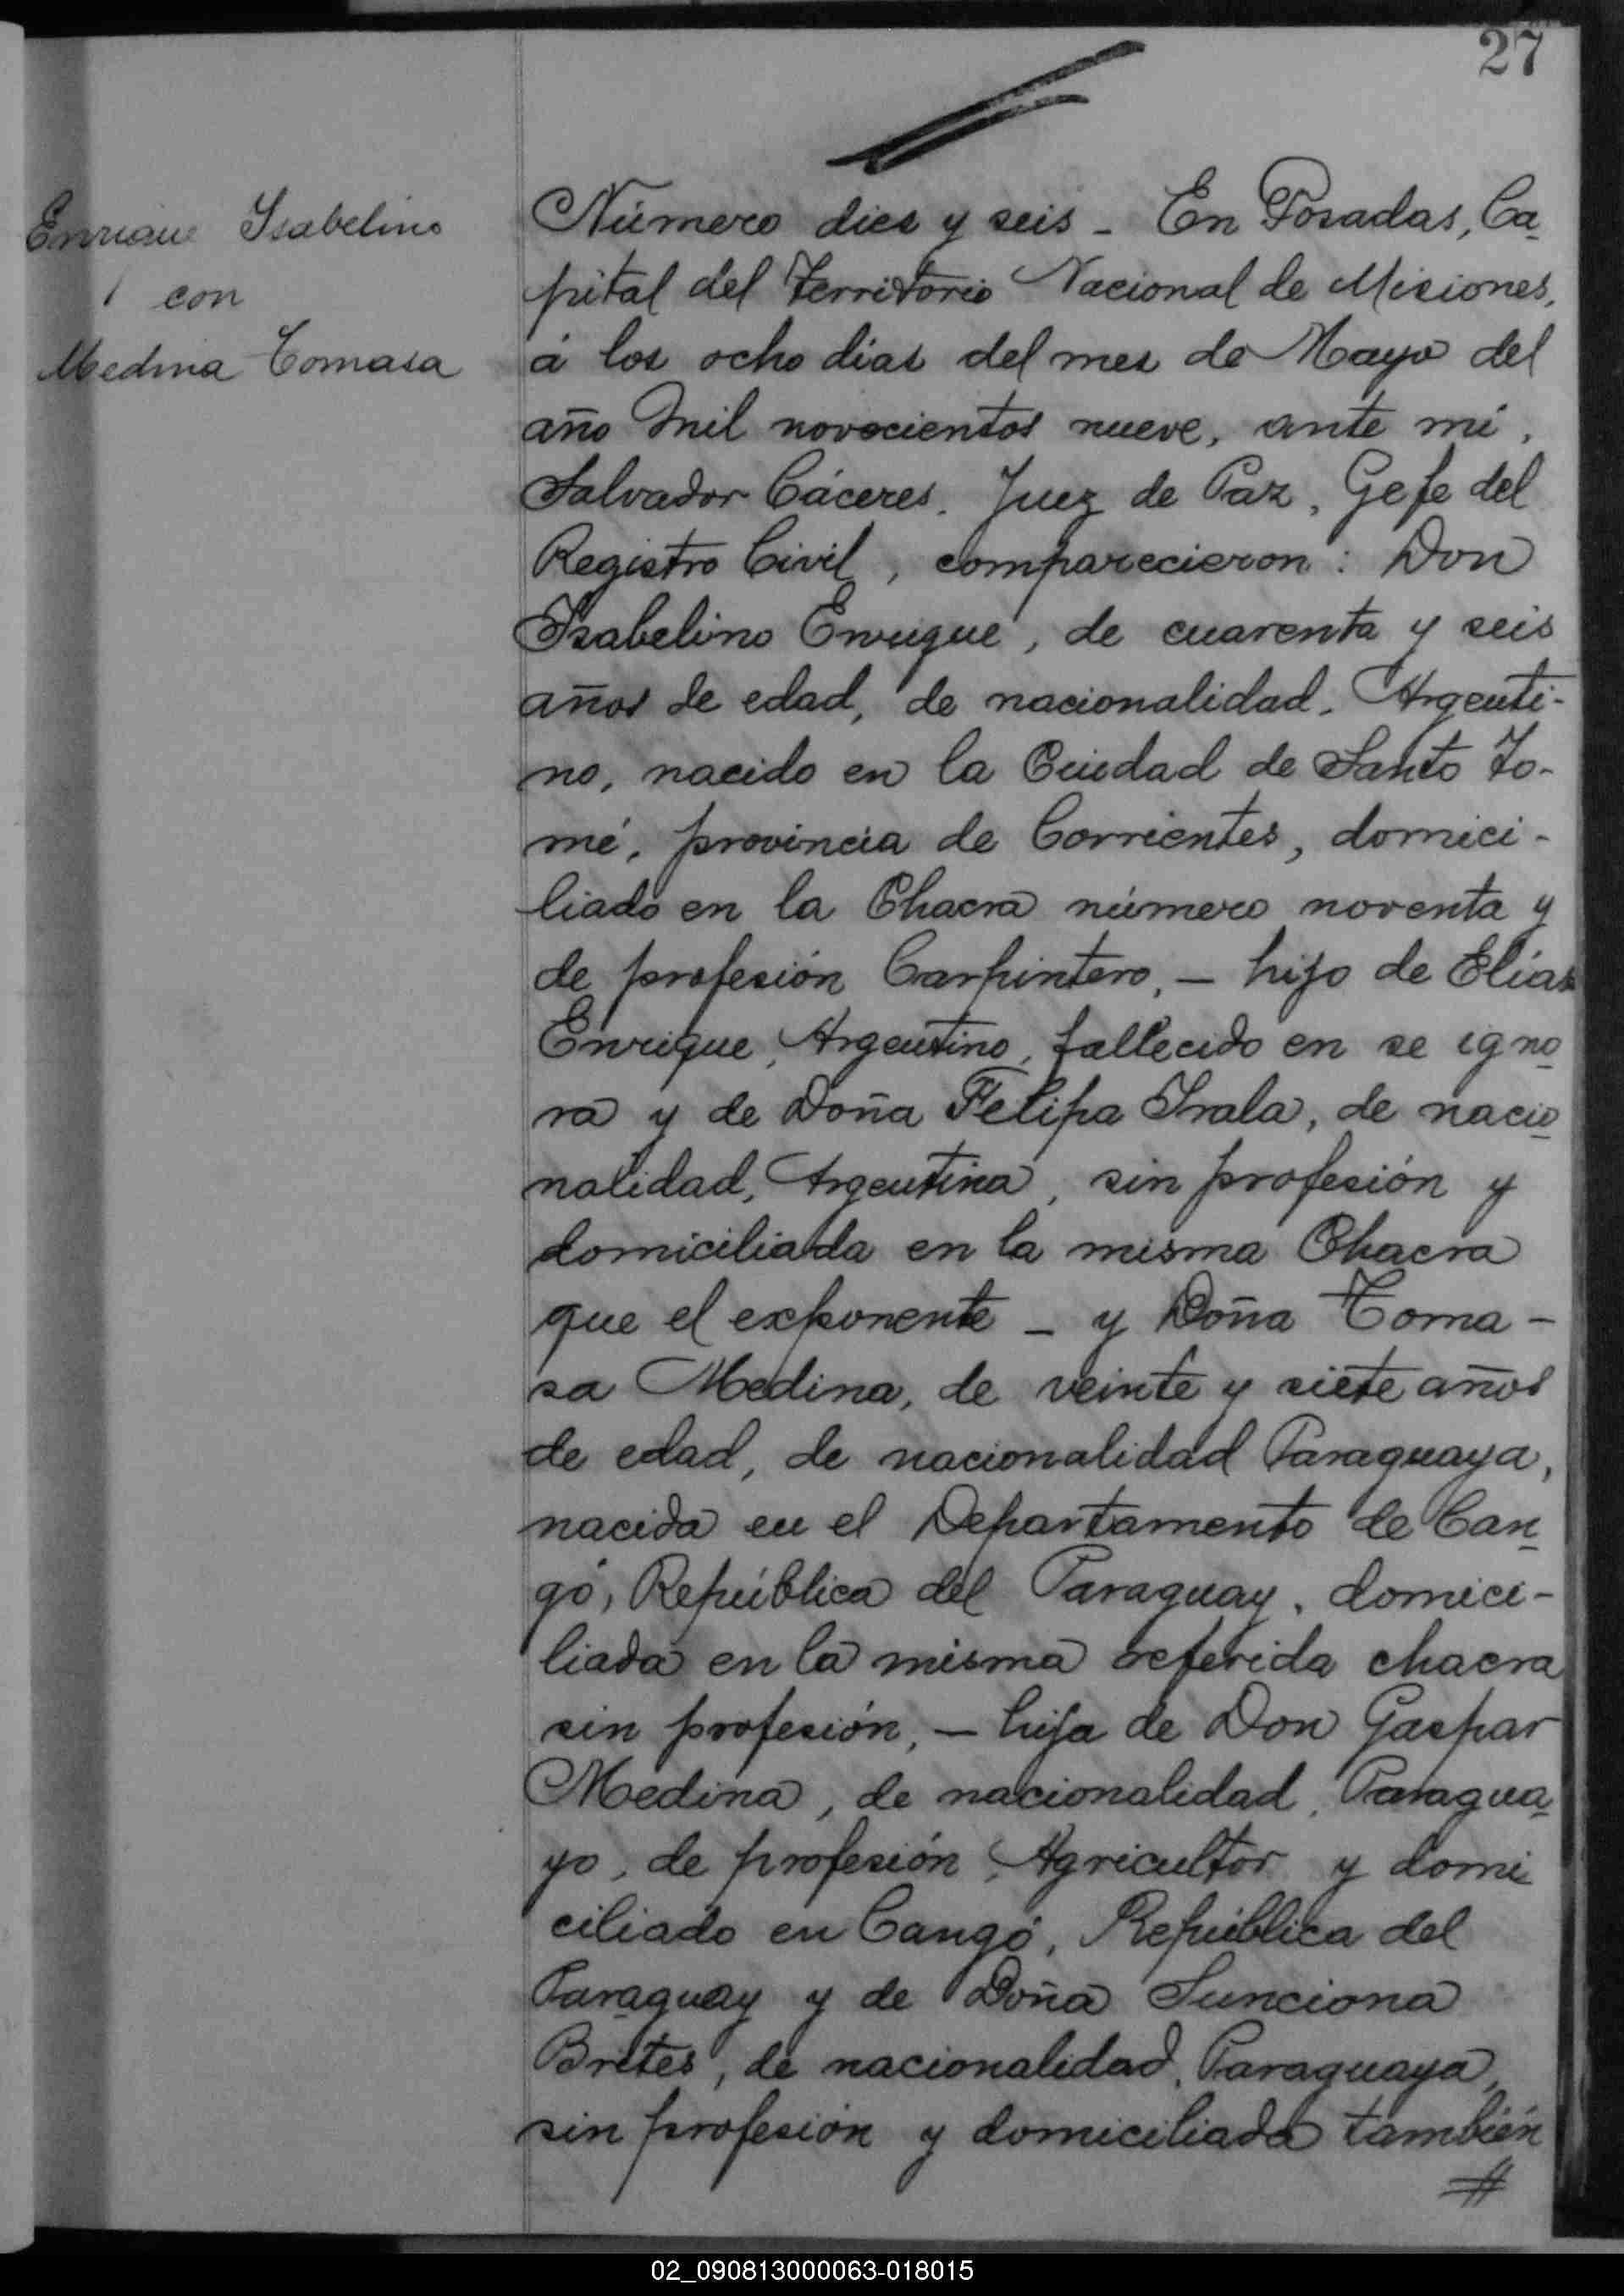 27
Enrique Isabelino
con
Medina Tomasa
Número dies y seis - En Posadas, Ca-
pital del Territorio Nacional de Misiones,
á los ocho dias del mes de Mayo del
año mil novecientos nueve, ante mi,
Salvador Cáceres, Juez de Paz, Gefe del
Registro Civil, comparecieron: Don
Isabelino Enrique, de cuarenta y seis
años de edad, de nacionalidad, Argenti-
no, nacido en la Ciudad de Santo To-
mé, provincia de Corrientes, domici-
liado en la Chacra número noventa y
de profesión Carpintero, - hijo de Elías
Enrique, Argentino, fallecido en se igno-
ra y de Doña Felipa Irala, de nacio-
nalidad, Argentina, sin profesión y
domiciliada en la misma Chacra
que el exponente - y Doña Toma-
sa Medina, de veinte y siete años
de edad, de nacionalidad Paraguaya,
nacida en el Departamento de Can-
gó, República del Paraguay, domici-
liada en la misma referida chacra
sin profesión, - hija de Don Gaspar
Medina, de nacionalidad, Paragua-
yo, de profesión, Agricultor y domi-
ciliado en Cangó, República del
Paraguay y de Doña Sunciona
Brites, de nacionalidad, Paraguaya,
sin profesión y domiciliada también
02_090813000063-018015